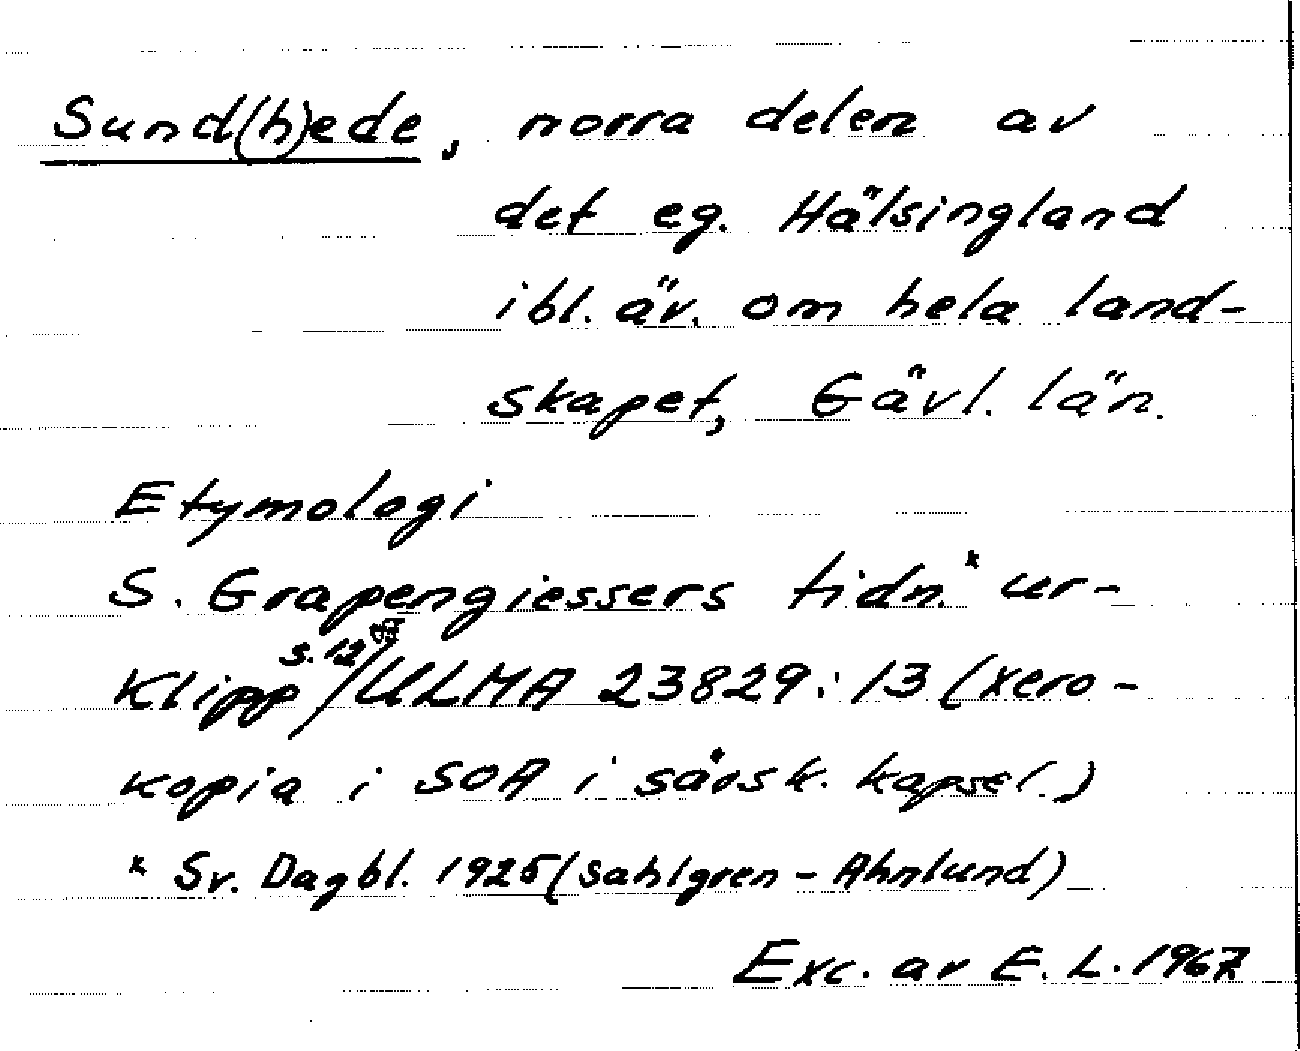 Sund(h)ede, norra delen av
det eg. Hälsingland
ibl. äv. om hela land-
skapet, Gävl. län.
Etymologi
S. Grapengiessers tidn.* ur-
klipp s. 12 / ULMA 23829:13 (xero-
kopia i SOA i särsk. kapsel.)
* Sv. Dagbl. 1925 (Sahlgren - Ahnlund)
Exc. av E. L. 1967